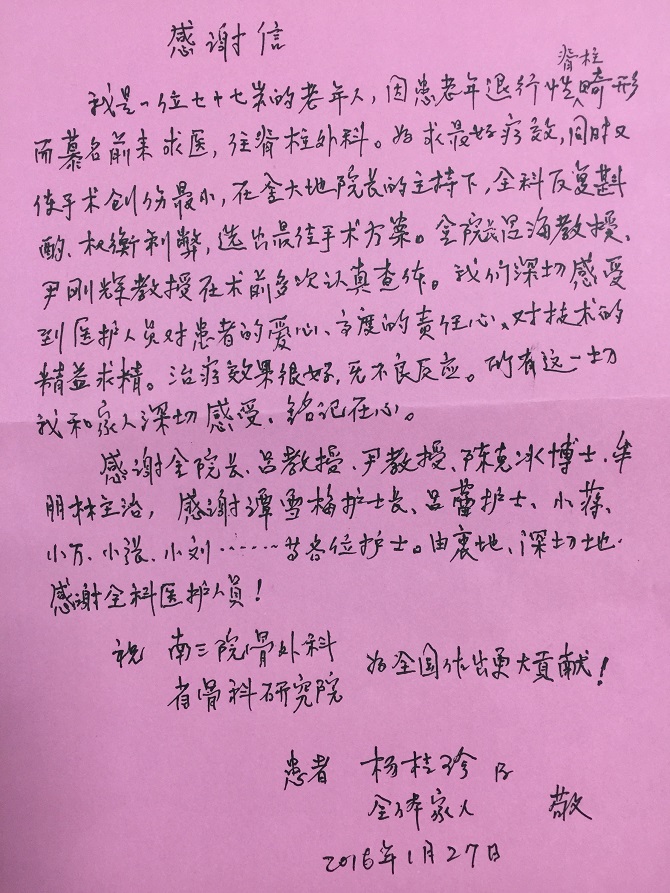 感谢信
我是一位七十七岁的老年人，因患老年退行性脊柱畸形
而慕名前来求医，住脊柱外科。为求最好疗效，同时又
使手术创伤最小，在金大地院长的主持下，全科反复斟
酌、权衡利弊，选出最佳手术方案。金院长吕海教授、
尹刚辉教授在术前多次认真查体。我们深切感受
到医护人员对患者的爱心、高度的责任心、对技术的
精益求精。治疗效果很好，无不良反应。所有这一切
我和家人深切感受、铭记在心。
感谢金院长、吕教授、尹教授、陈克冰博士、牟
朋林主治，感谢谭雪梅护士长、吕蕾护士、小薛、
小万、小张、小刘……等各位护士。由衷地、深切地
感谢全科医护人员！
祝 南三院骨外科
省骨科研究院
为全国作出更大贡献！
患者 杨桂珍 及
全体家人 敬
2016年1月27日